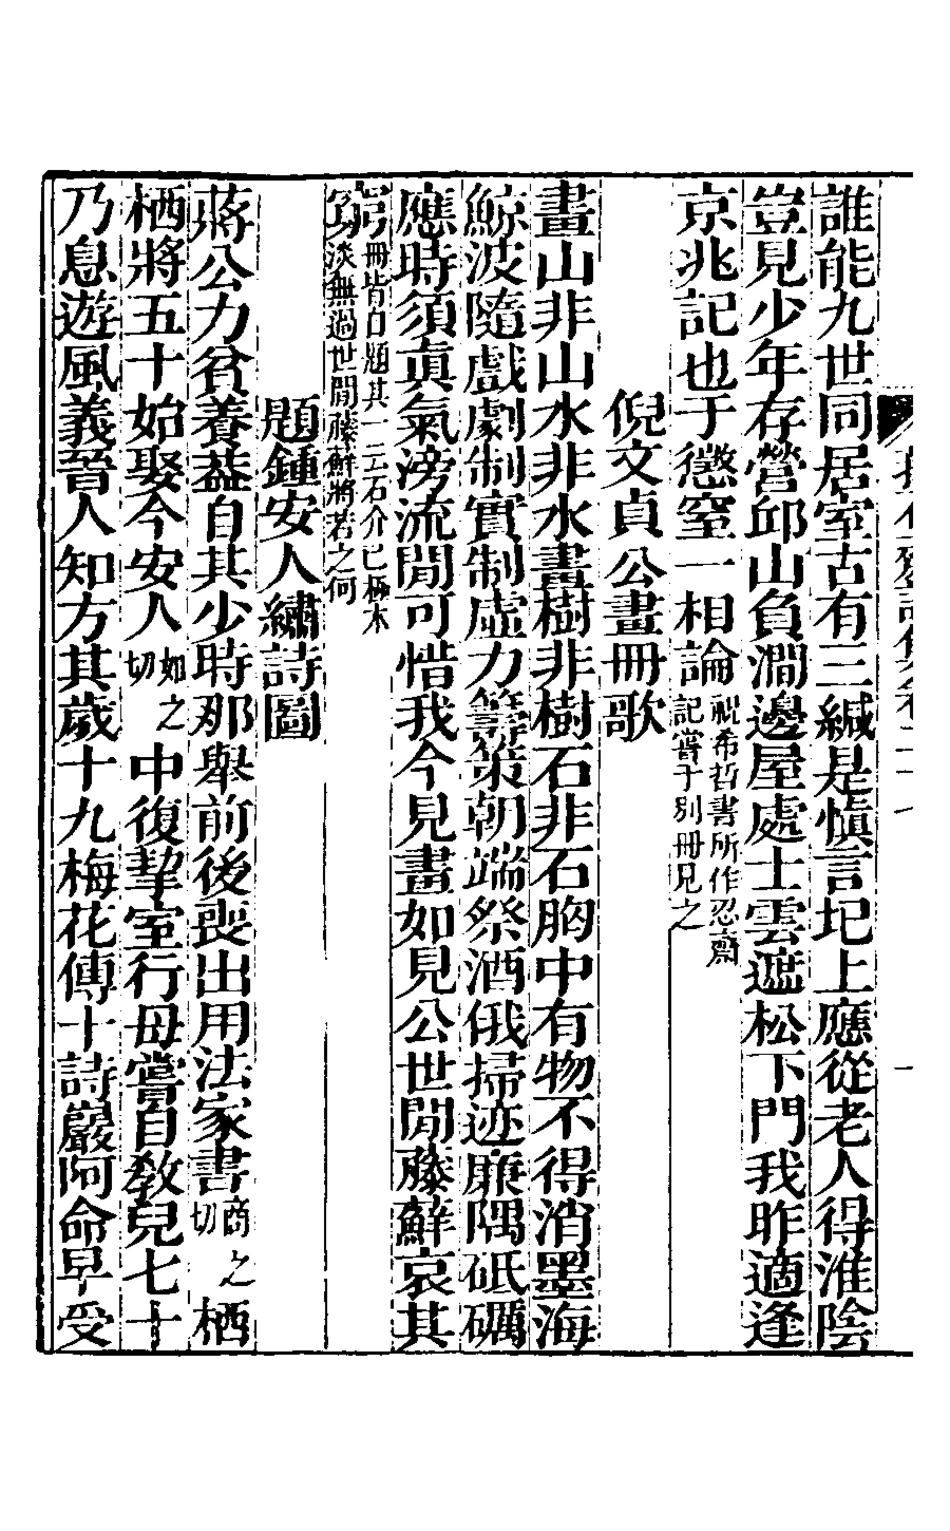 誰能九世同居室古有三緘是愼言圯上應從老人得淮陰
豈見少年存營邱山負澗邊屋處士雲遮松下門我昨適逢
京兆記也于懲窒一相論祝希哲書所作忍齋記嘗于別冊見之
倪文貞公畫冊歌
畫山非山水非水畫樹非樹石非石胸中有物不得消墨海
鯨波隨戲劇制實制虛力籌策朝端祭酒俄掃迹廉隅砥礪
應時須眞氣滂流閒可惜我今見畫如見公世閒藤蘚哀其
窮冊皆自題其一云石介巳極木窮淡無過世閒藤蘚將若之何
題鍾安人繡詩圖
蔣公力貧養益自其少時那舉前後喪出用法家書商之切栖
栖將五十始娶今安人如之切中復挈室行母嘗自敎兒七十
乃息遊風義晉人知方其歲十九梅花傳十詩巖阿命早受